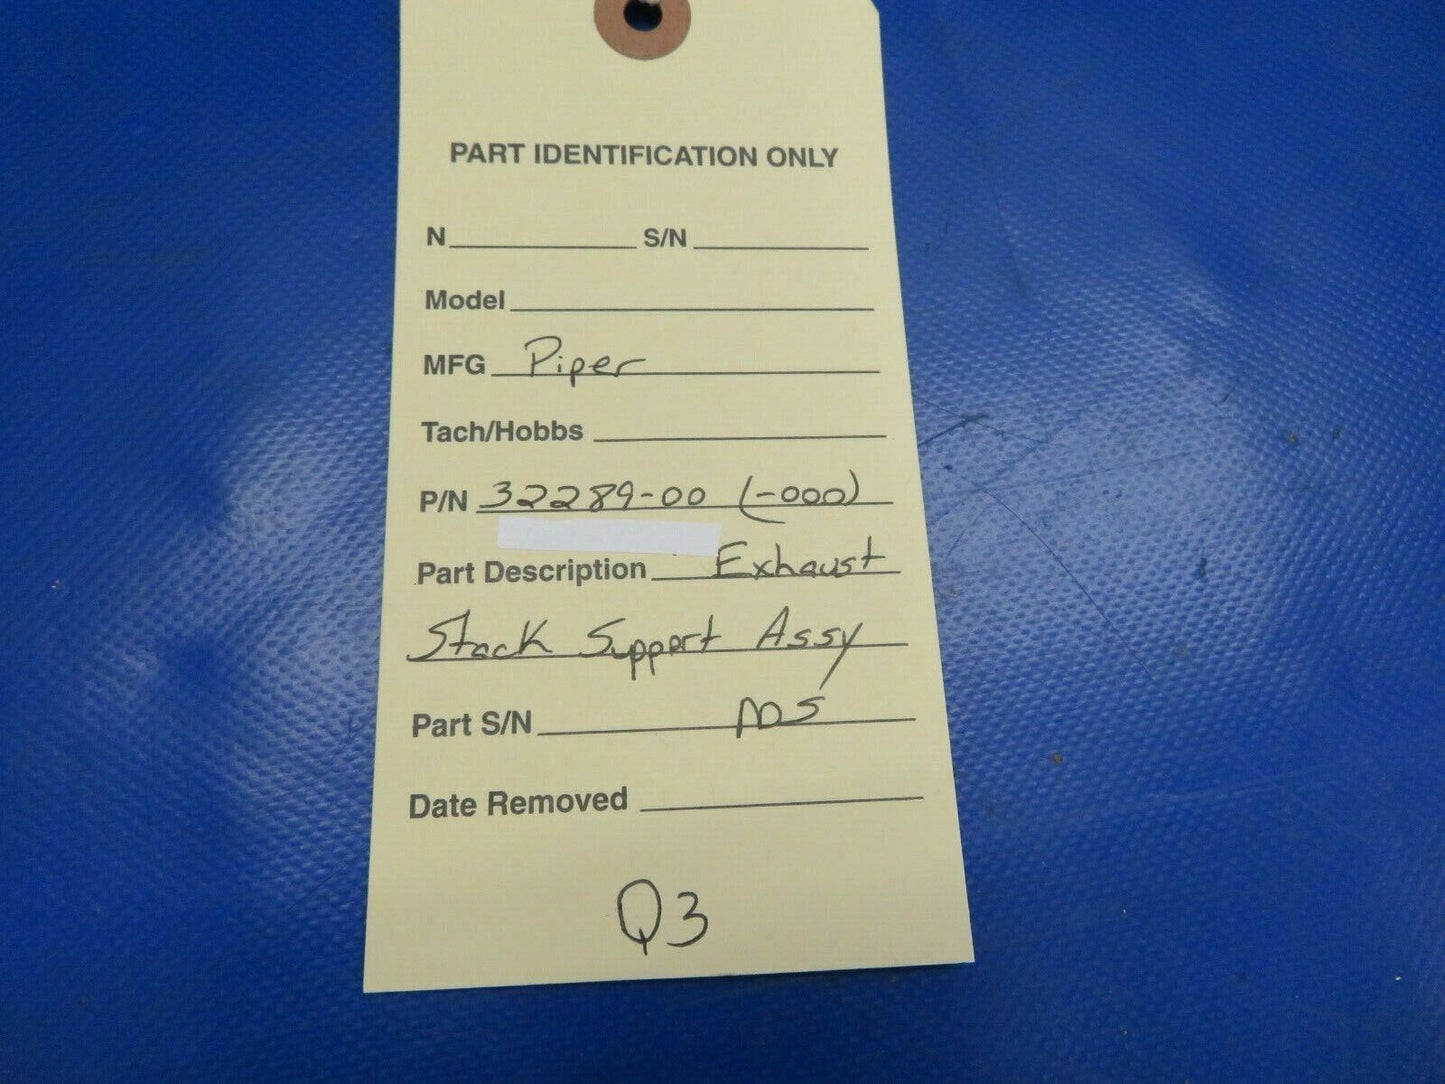 PART IDENTIFICATION ONLY
N S/N
Model
MFG Piper
Tach/Hobbs
P/N 32289-00 (-000)
Part Description Exhaust
Stack Support Assy
Part S/N NS
Date Removed
Q3